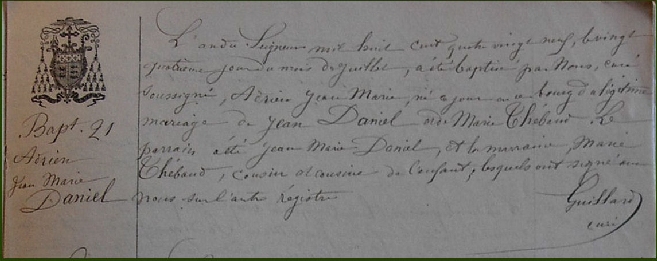 Bapt. 21
Adrien
Jean Marie
Daniel
L'an du Seigneur mil huit cent quatre vingt neuf, le vingt
quatrième jour du mois de Juillet, a été baptisé par Nous, curé
soussigné, Adrien Jean Marie, né ce jour en ce bourg du légitime
mariage de Jean Daniel et de Marie Thébaud. Le
parrain a été Jean Marie Daniel, et la marraine, Marie
Thébaud, cousin et cousine de l'enfant, lesquels ont signé avec
nous sur l'autre registre
Guillard
curé